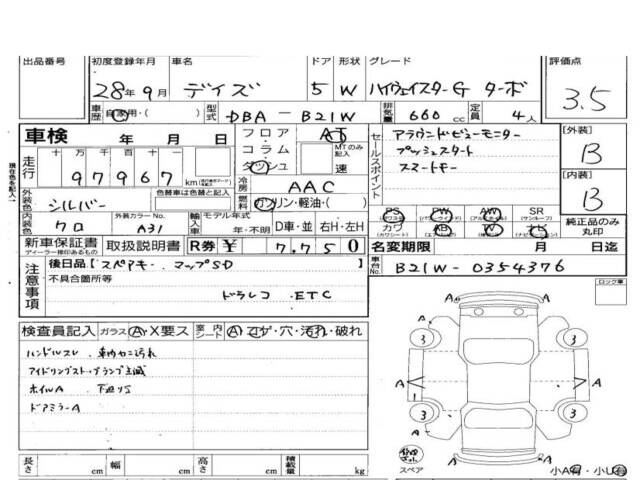 出品番号 初度登録年月 車名 ドア 形状 グレード 評価点
28年9月 デイズ 5 W ハイウェイスターG ターボ 3.5
車歴 自家用・( ) 型式 DBA － B21W 排気量 660 cc 定員 4人
車検 年 月 日 フロア AT セールスポイント アラウンドビューモニター [外装]
コラム MTのみ記入 プッシュスタート B
走行 十 万 千 百 十 一 ダッシュ 速 スマートキー
97967 km 冷房 AAC [内装]
外装色 シルバー 色替車は色替と記入 燃料 ガソリン・軽油・( ) B
内装色 クロ 外装カラーNo. A31 輸入車 モデル年式 年・不明 D車・並 右H・左H
PS PW AW SR (サンルーフ) 純正品のみ丸印
カワ (カワシート) AB TV ナビ
新車保証書 ディーラー捺印あるもの 取扱説明書 R券 ￥ 7,750 名変期限 月 日迄
注意事項 後日品【スペアキー、マップSD 】 車台No. B21W－0354376
不具合箇所等
ドラレコ . ETC
ロック車
検査員記入 ガラス A X要ス 室内シート A コゲ・穴・汚れ・破れ
ハンドルスレ 車内カニ汚れ
アイドリングストップランプ点滅
ホイルA 下廻りS
ドアミラーA
A A
3 3
A A A A
1
3 3
スペア A 小A有・小U有
長さ cm 幅 cm 高さ cm 積載量 kg
現在色を記入